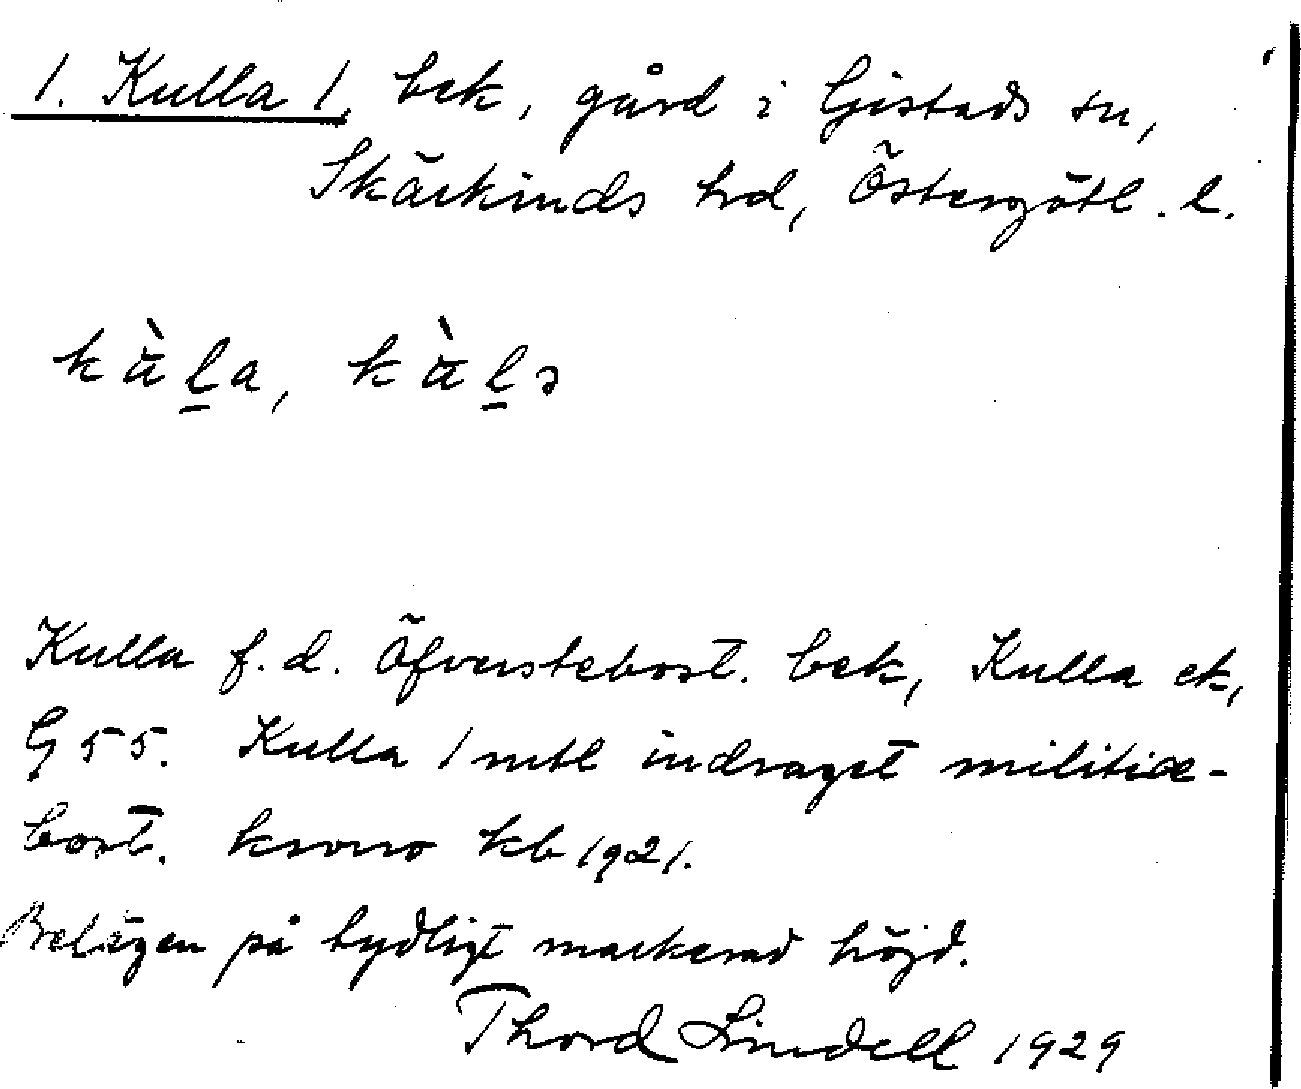 1. Kulla 1, bek, gård i Gistads sn,
Skärkinds hrd, Östergötl. l.
kàl̲a, kàl̲ə
Kulla f.d. Öfverstebost. bek, Kulla ek,
G 55. Kulla 1 mtl indraget militiæ-
bost. krono kb 1921.
Belägen på tydligt markerad höjd.
Thord Lindell 1929